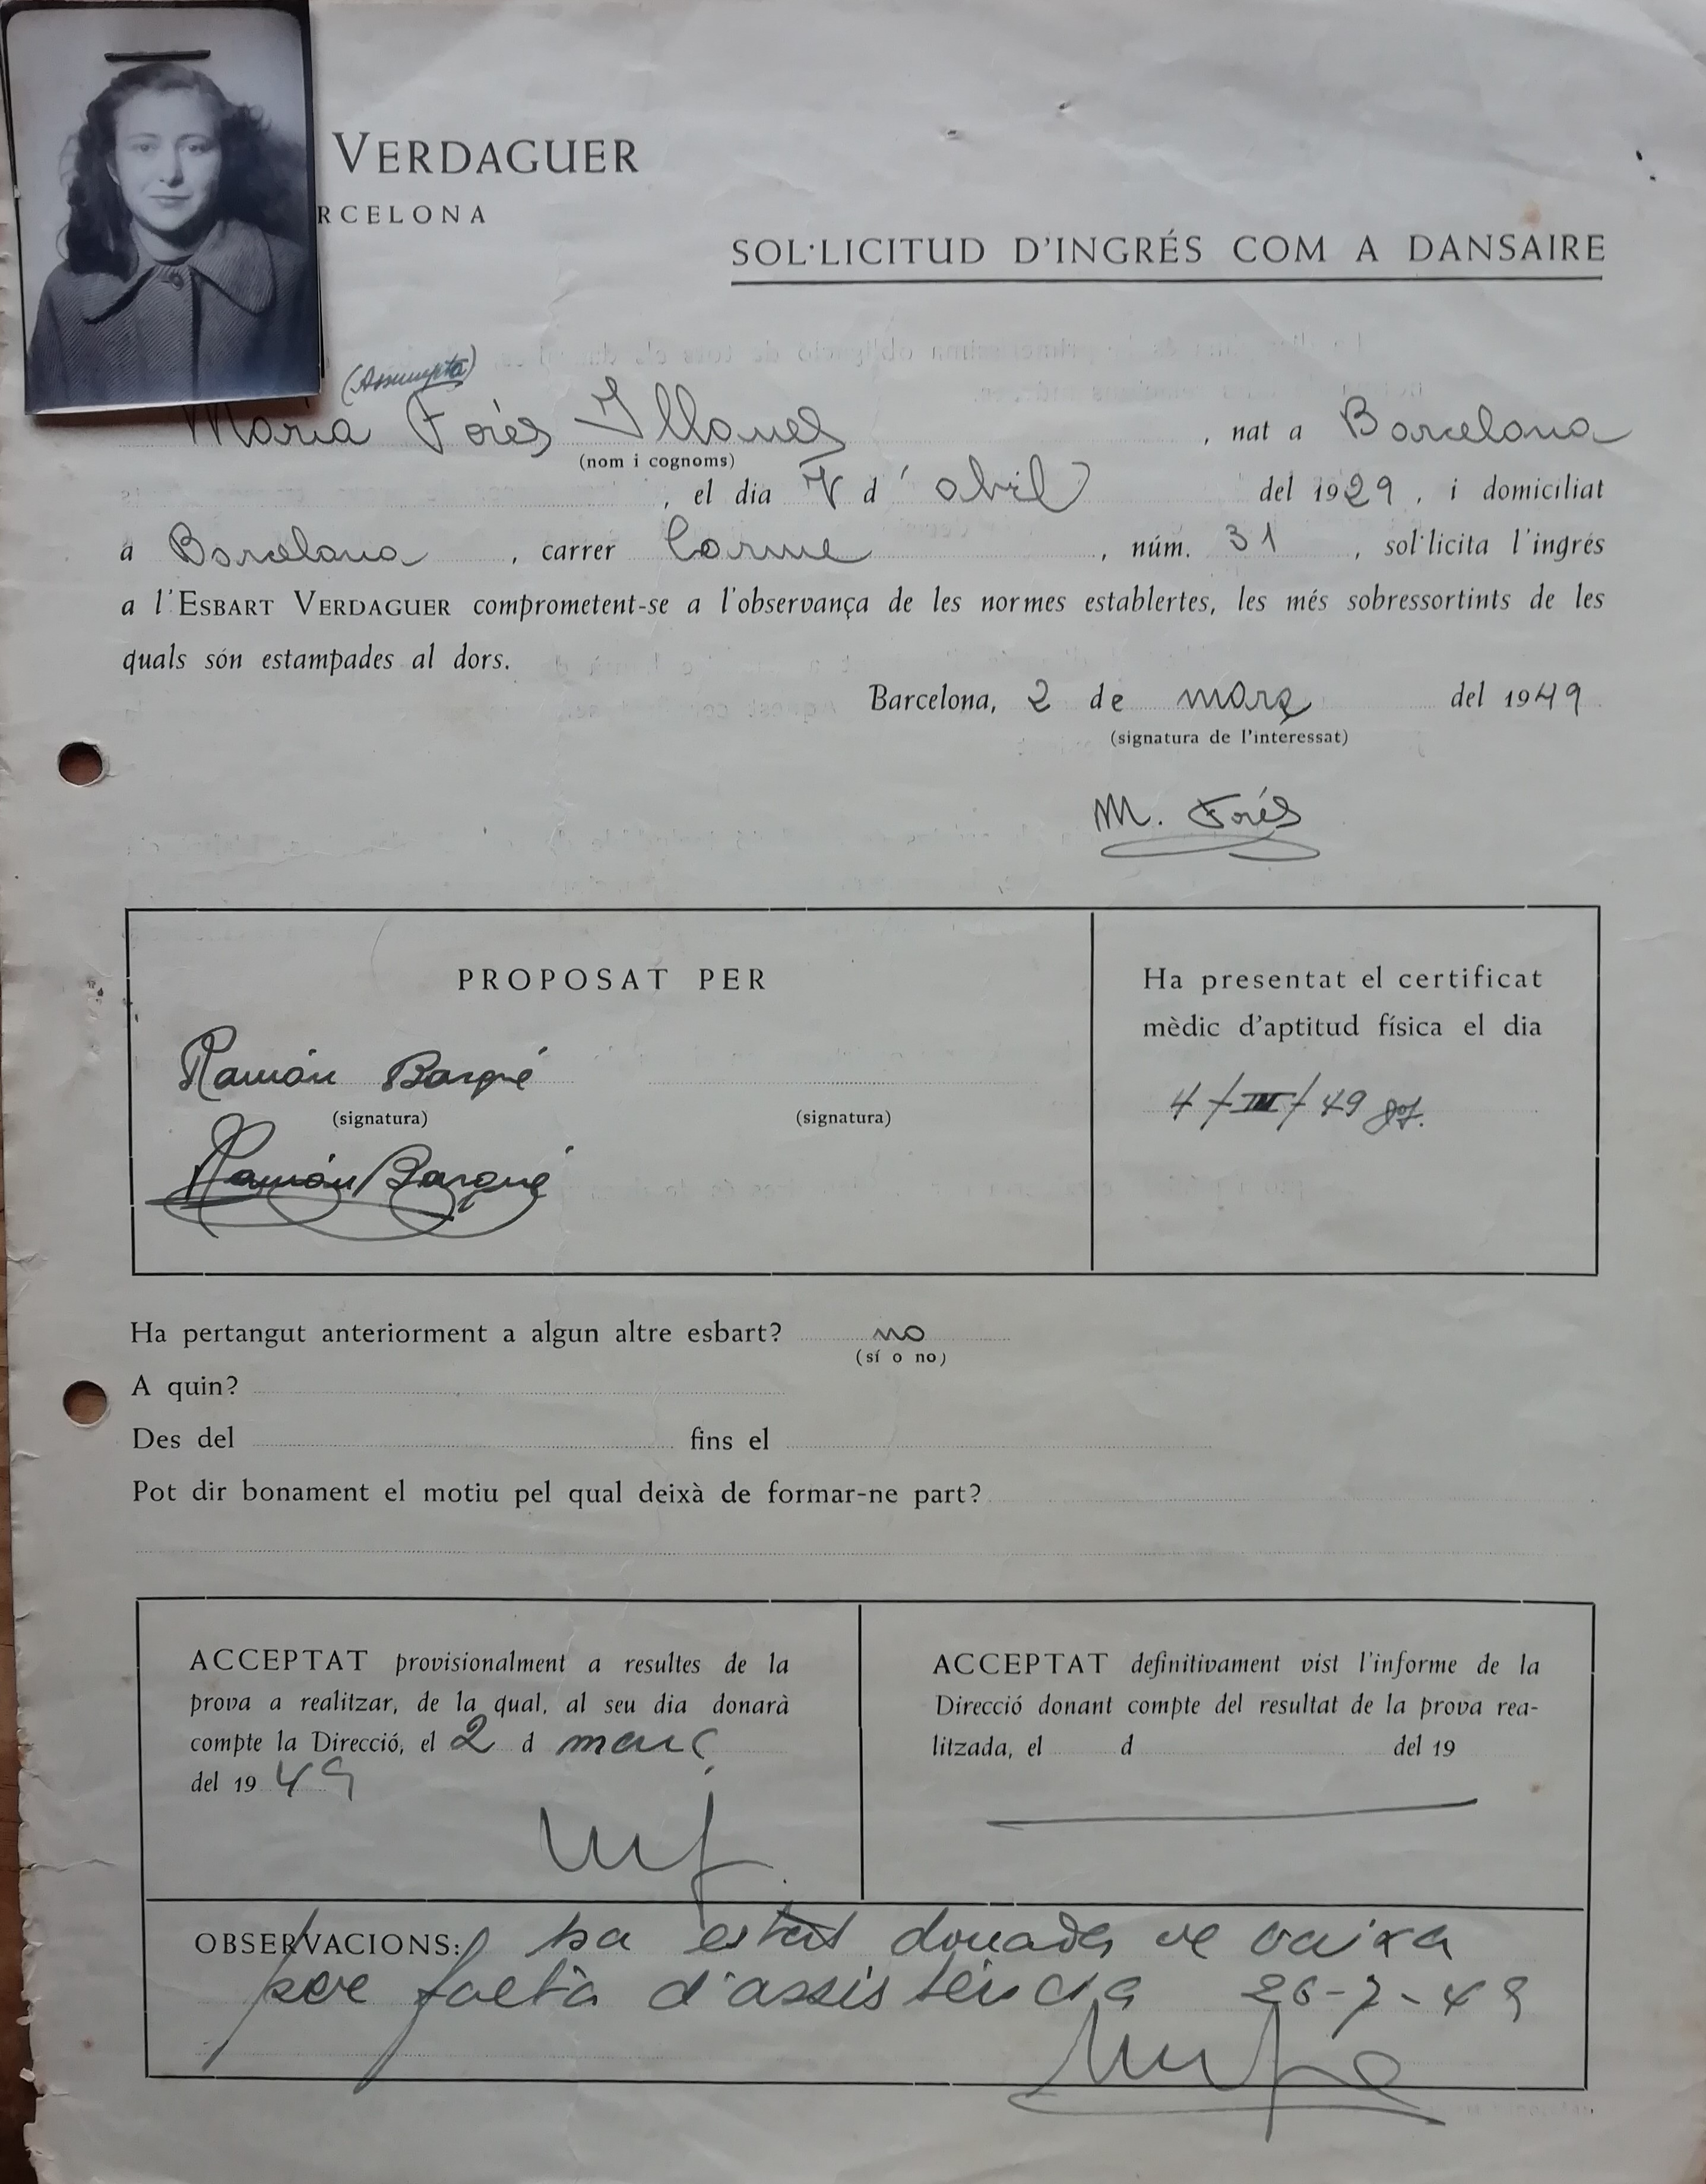 VERDAGUER
RCELONA
SOL·LICITUD D'INGRÉS COM A DANSAIRE
(Assumpta)
Maria Forés Illanes , nat a Barcelona
(nom i cognoms)
, el dia 7 d' abril del 1929 , i domiciliat
a Barcelona , carrer Carme , núm. 31 , sol·licita l'ingrés
a l'ESBART VERDAGUER comprometent-se a l'observança de les normes establertes, les més sobressortints de les
quals són estampades al dors.
Barcelona, 2 de març del 1949
(signatura de l'interessat)
M. Forés
PROPOSAT PER
Ha presentat el certificat
mèdic d'aptitud física el dia
Ramón Bargué
4/III/49
(signatura) (signatura)
Ramón Bargué
Ha pertangut anteriorment a algun altre esbart? no
(sí o no)
A quin?
Des del fins el
Pot dir bonament el motiu pel qual deixà de formar-ne part?
ACCEPTAT provisionalment a resultes de la
prova a realitzar, de la qual, al seu dia donarà
compte la Direcció, el 2 d març
del 1949
ACCEPTAT definitivament vist l'informe de la
Direcció donant compte del resultat de la prova rea-
litzada, el d del 19
OBSERVACIONS: ha estat donada de baixa
per falta d'assistència 26-7-49